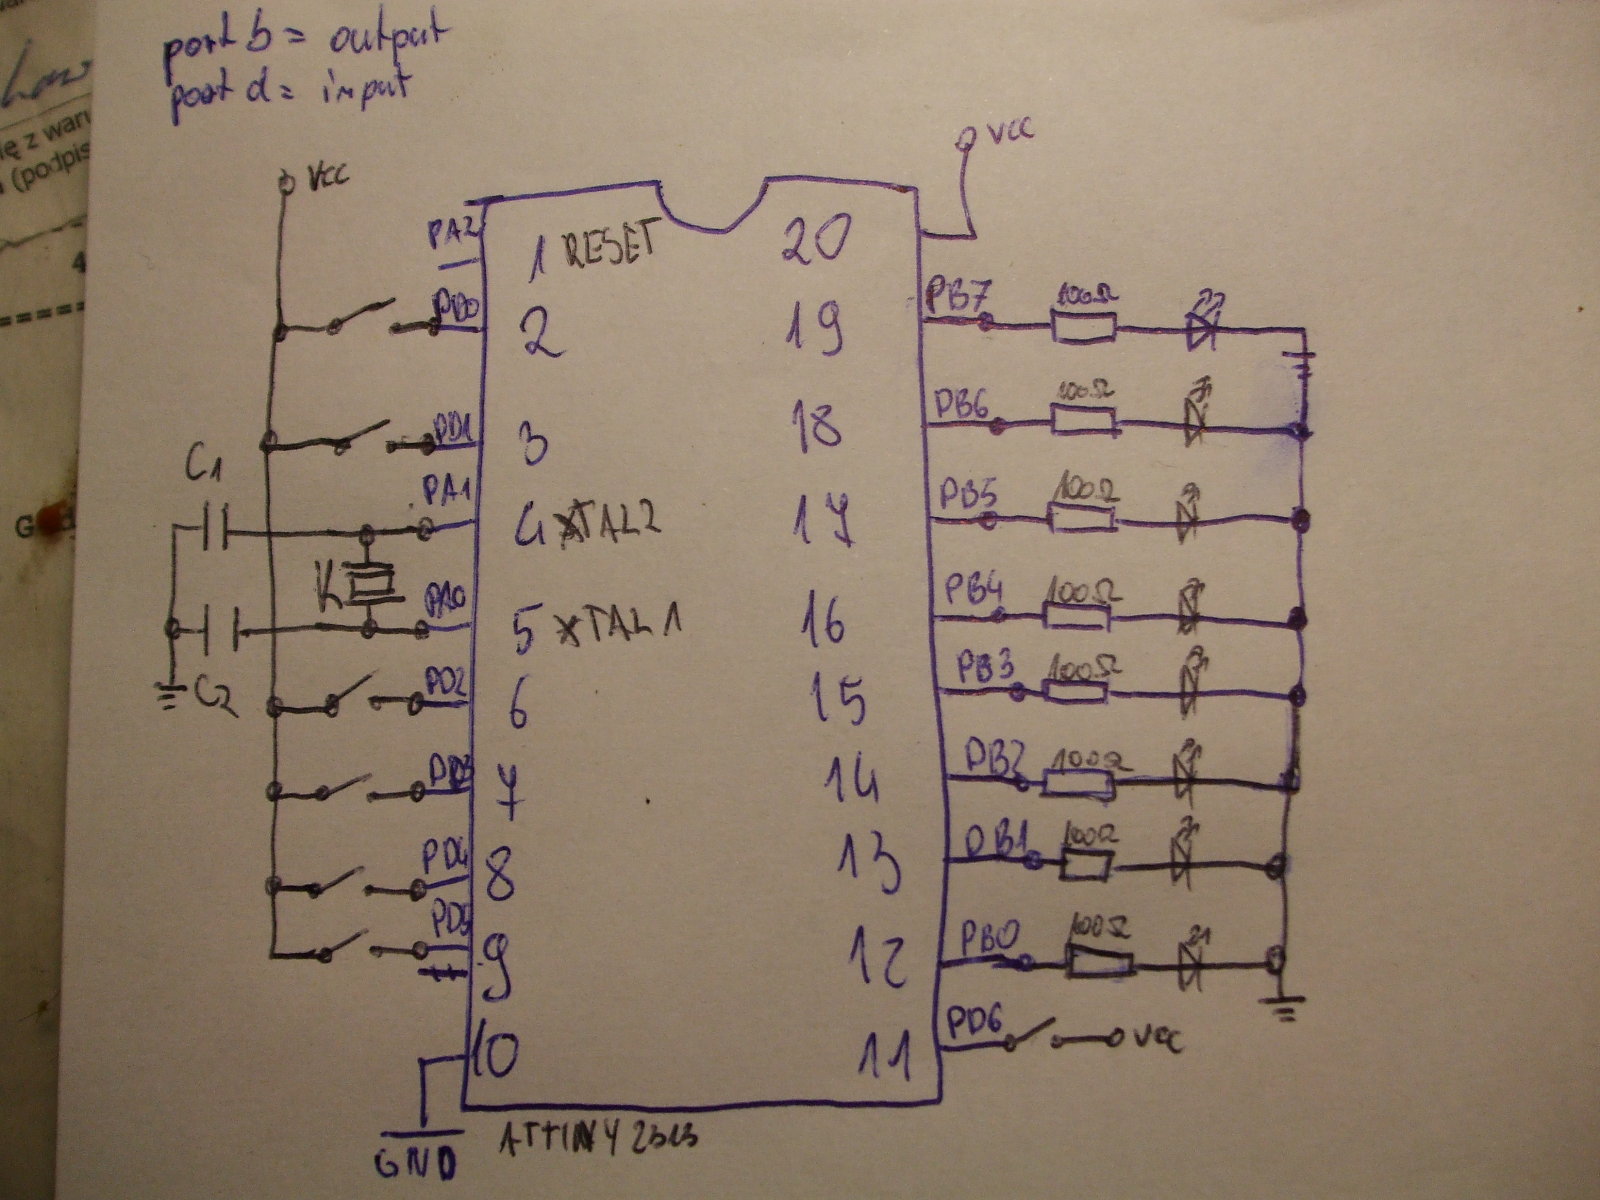 port b = output
port d = input
ę z waru
(podpis
4
VCC
VCC
PA2
1 RESET
20
PD0
2
19
PB7
100Ω
PD1
3
18
PB6
100Ω
C1
PA1
4 XTAL2
17
PB5
100Ω
K
PA0
5 XTAL1
16
PB4
100Ω
C2
PD2
6
15
PB3
100Ω
PD3
7
14
PB2
100Ω
PD4
8
13
PB1
100Ω
PD5
9
12
PB0
100Ω
10
11
PD6
VCC
GND
ATTINY 2313